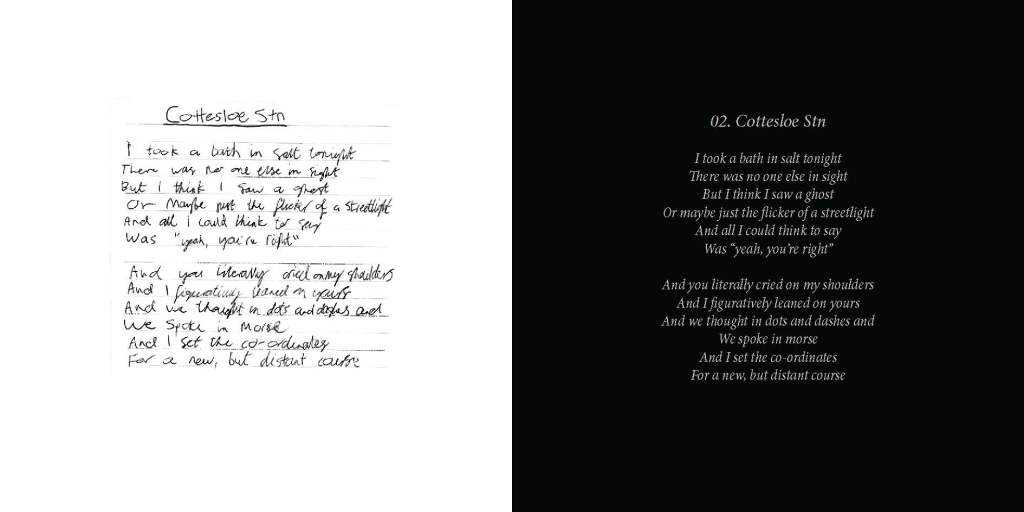 Cottesloe Stn
I took a bath in salt tonight
There was no one else in sight
But I think I saw a ghost
Or maybe just the flicker of a streetlight
And all I could think to say
Was "yeah, you're right"
And you literally cried on my shoulders
And I figuratively leaned on yours
And we thought in dots and dashes and
We spoke in morse
And I set the co-ordinates
For a new, but distant course
02. Cottesloe Stn
I took a bath in salt tonight
There was no one else in sight
But I think I saw a ghost
Or maybe just the flicker of a streetlight
And all I could think to say
Was “yeah, you’re right”
And you literally cried on my shoulders
And I figuratively leaned on yours
And we thought in dots and dashes and
We spoke in morse
And I set the co-ordinates
For a new, but distant course